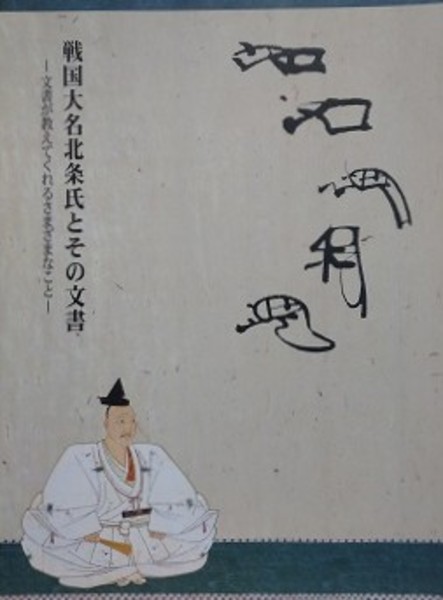 戦国大名北条氏とその文書
―文書が教えてくれるさまざまなこと―